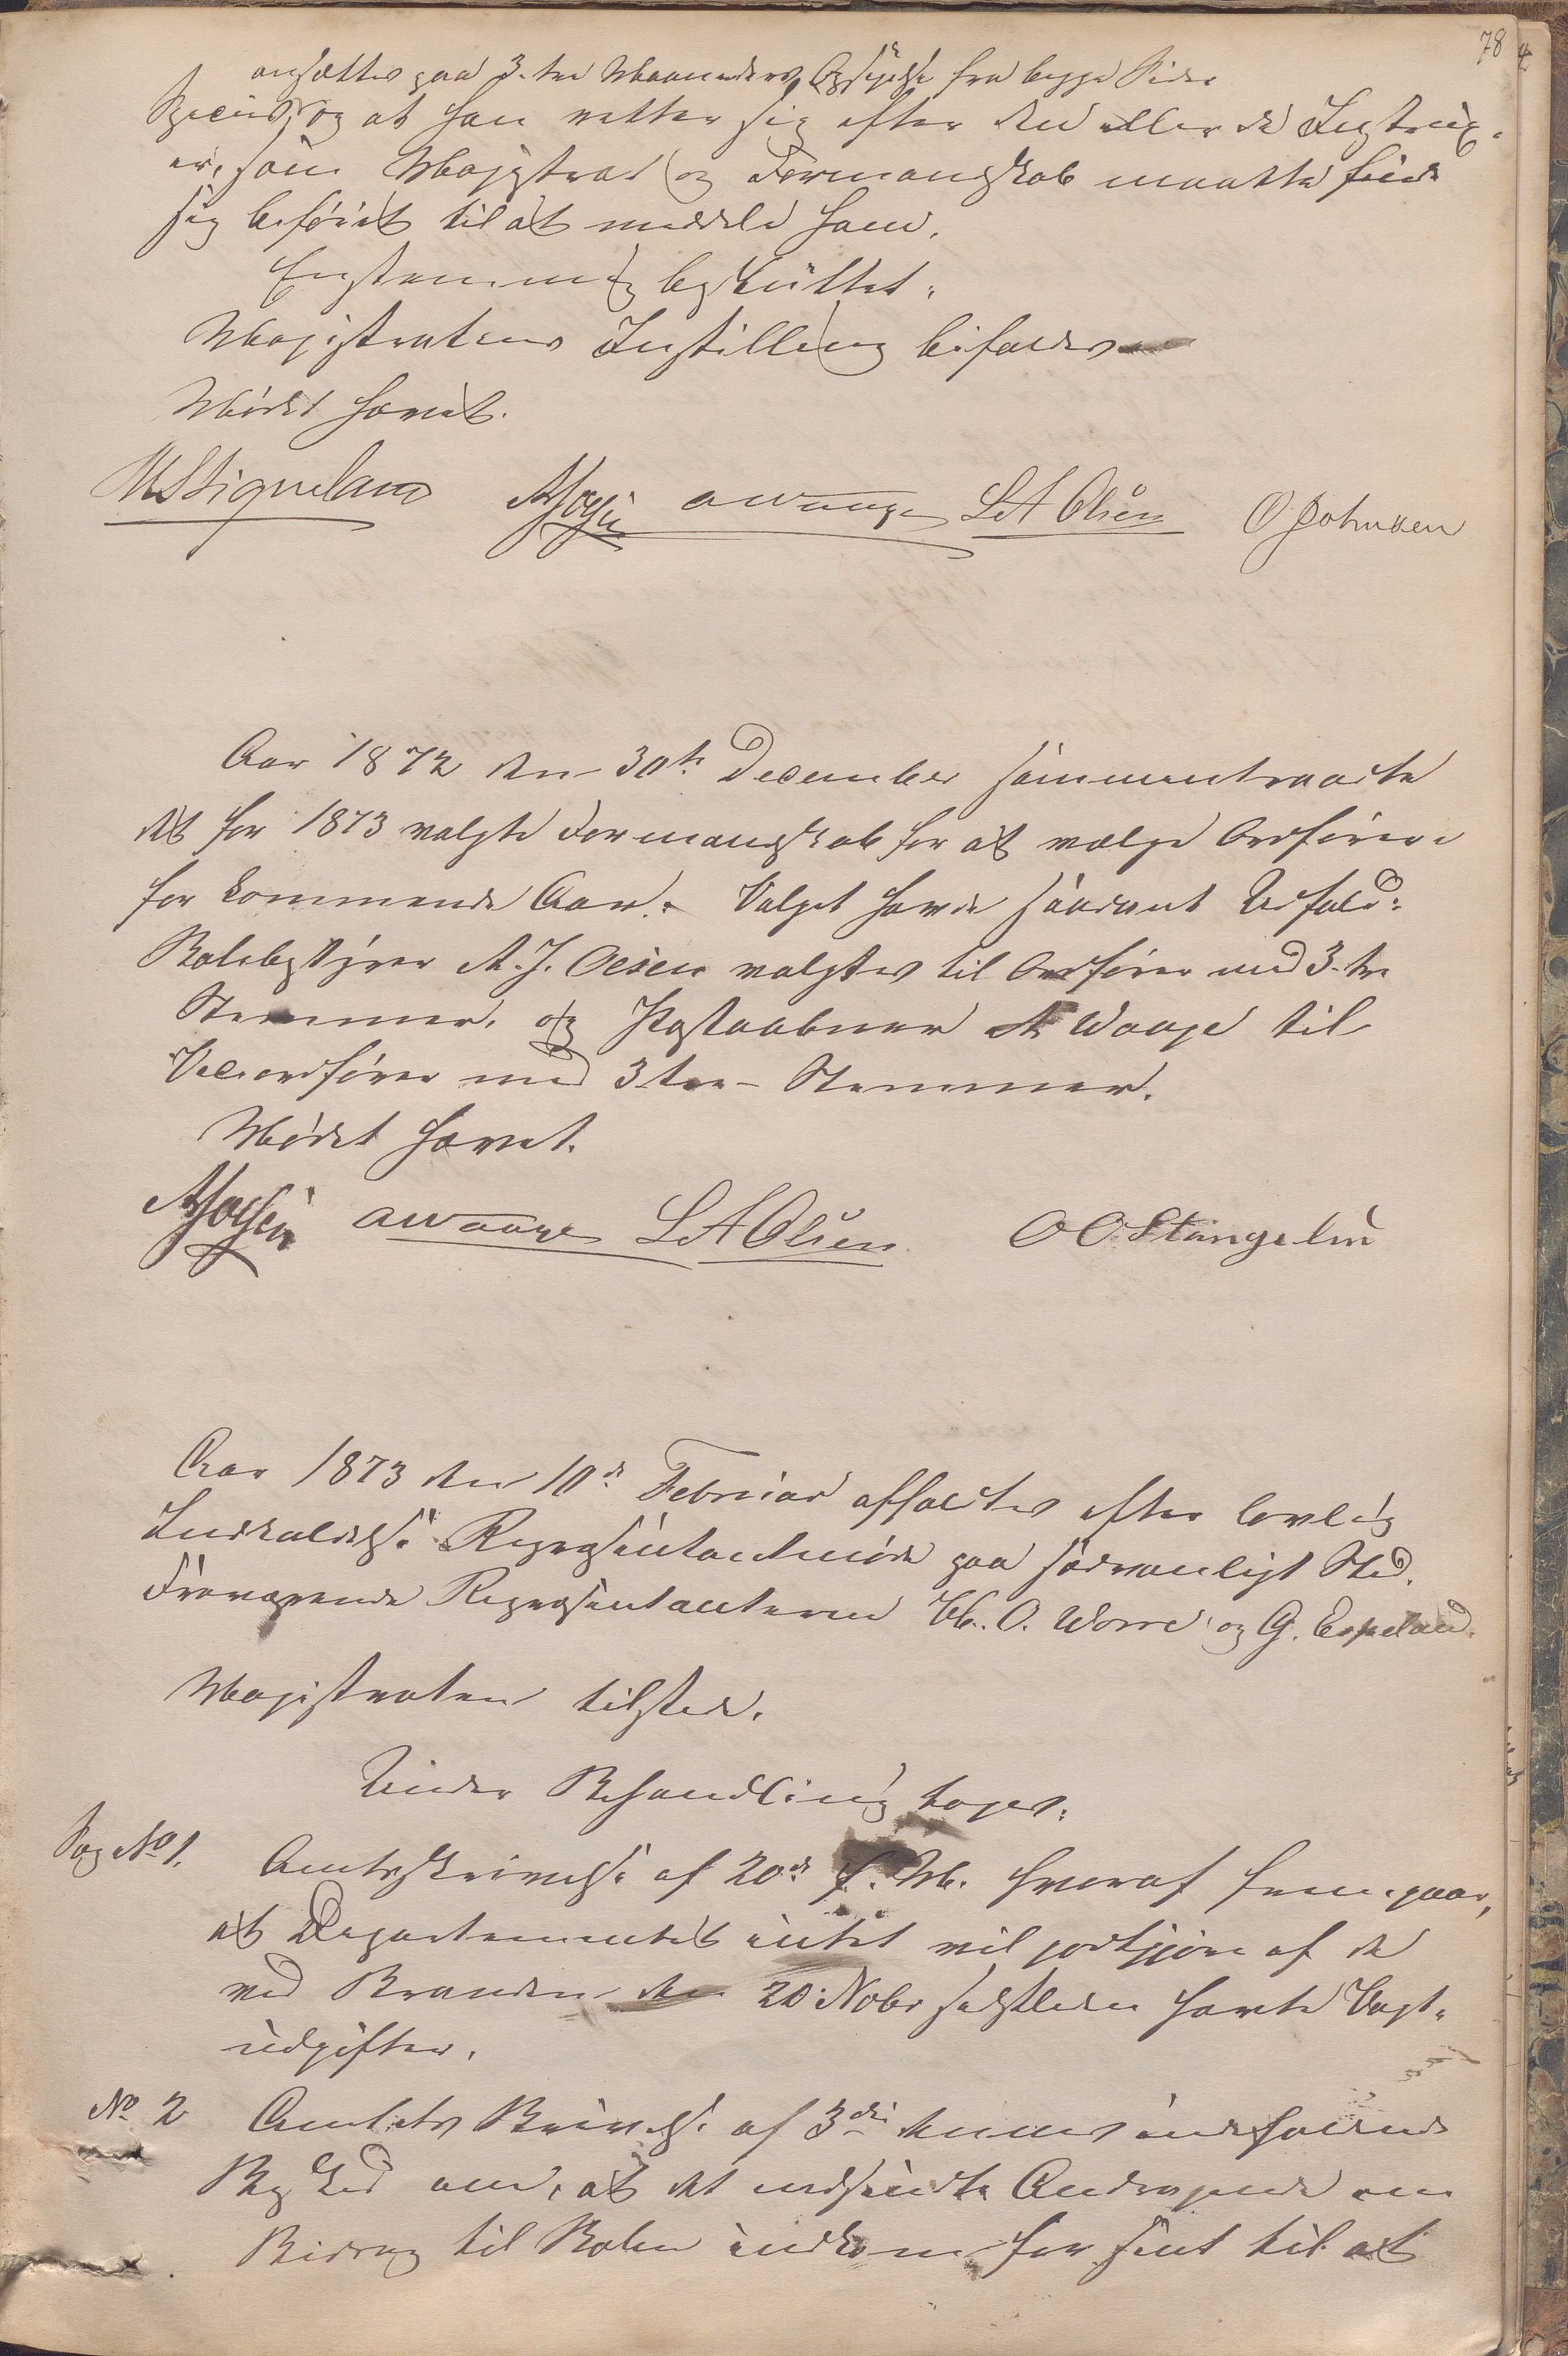 78
ansættes paa 3-tre Maaneders Opsigelse fra begge Sider
Specie, og at han retter sig efter den eller de Instrux-
er, som Magistrat og Formandskab maatte finde
sig beføiet til at meddele ham.
Enstemmig besluttet:
Magistratens Instilling bifaldes
Mødet hævet.
AJOlsen awaage LAOlsen OJohnsen
Aar 1872 den 30te December sammentraadte
det for 1873 valgte Formandskab for at vælge Ordfører
for kommende Aar. Valget havde saadant Udfald:
Bolebestyrer A. J. Olsen valgtes til Ordfører med 3-tre
Stemmer, og Postaabner A Waage til
Viceordfører med 3 tre- Stemmer.
Mødet hævet.
AJOlsen awaage LAOlsen OOStangelin
Aar 1873 den 10de Februar afholdtes efter lovlig
Indkaldelse Repræsentantmøde paa sædvanligt Sted.
Fraværende Repræsentanterne M. O. Worre og G. Espeland.
Magistraten tilstede.
Under Behandling toges:
Sag No 1. Amtsskrivelse af 20de f. M. hvoraf fremgaar,
at Departementet intet vil godtgjøre af de
ved Branden den 20 Nobr sidstleden havte Vagt-
udgifter.
No 2 Amtets Skrivelse af 3die dennes indeholdende
Besked om, at det indsendte Andragende om
Bidrag til Bolen indkom for sent til at